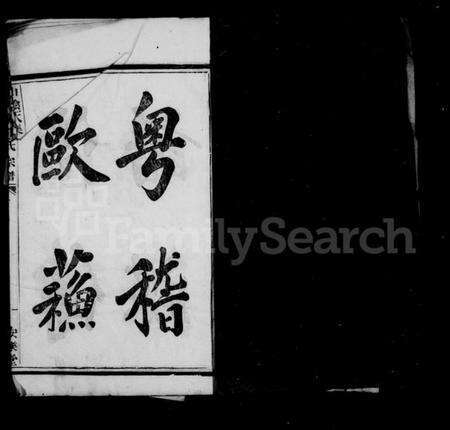 粤稽
歐蘓
FamilySearch